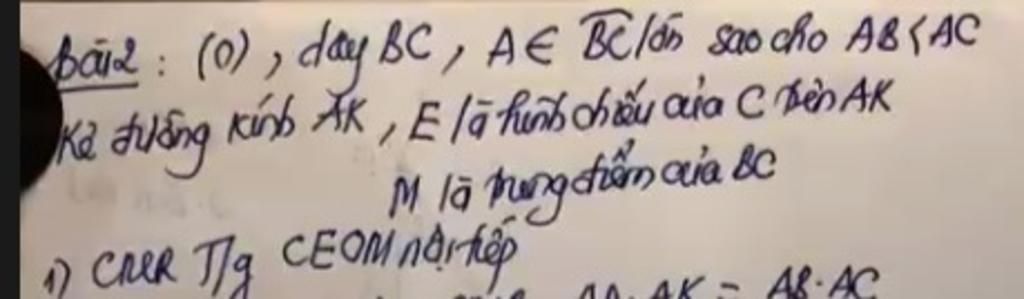 Bài 2 : (O), dây BC, A ∈ BC lớn sao cho AB < AC
Kẻ đường kính AK, E là hình chiếu của C trên AK
M là trung điểm của BC
1) CMR T/g CEOM nội tiếp
AK = AB.AC